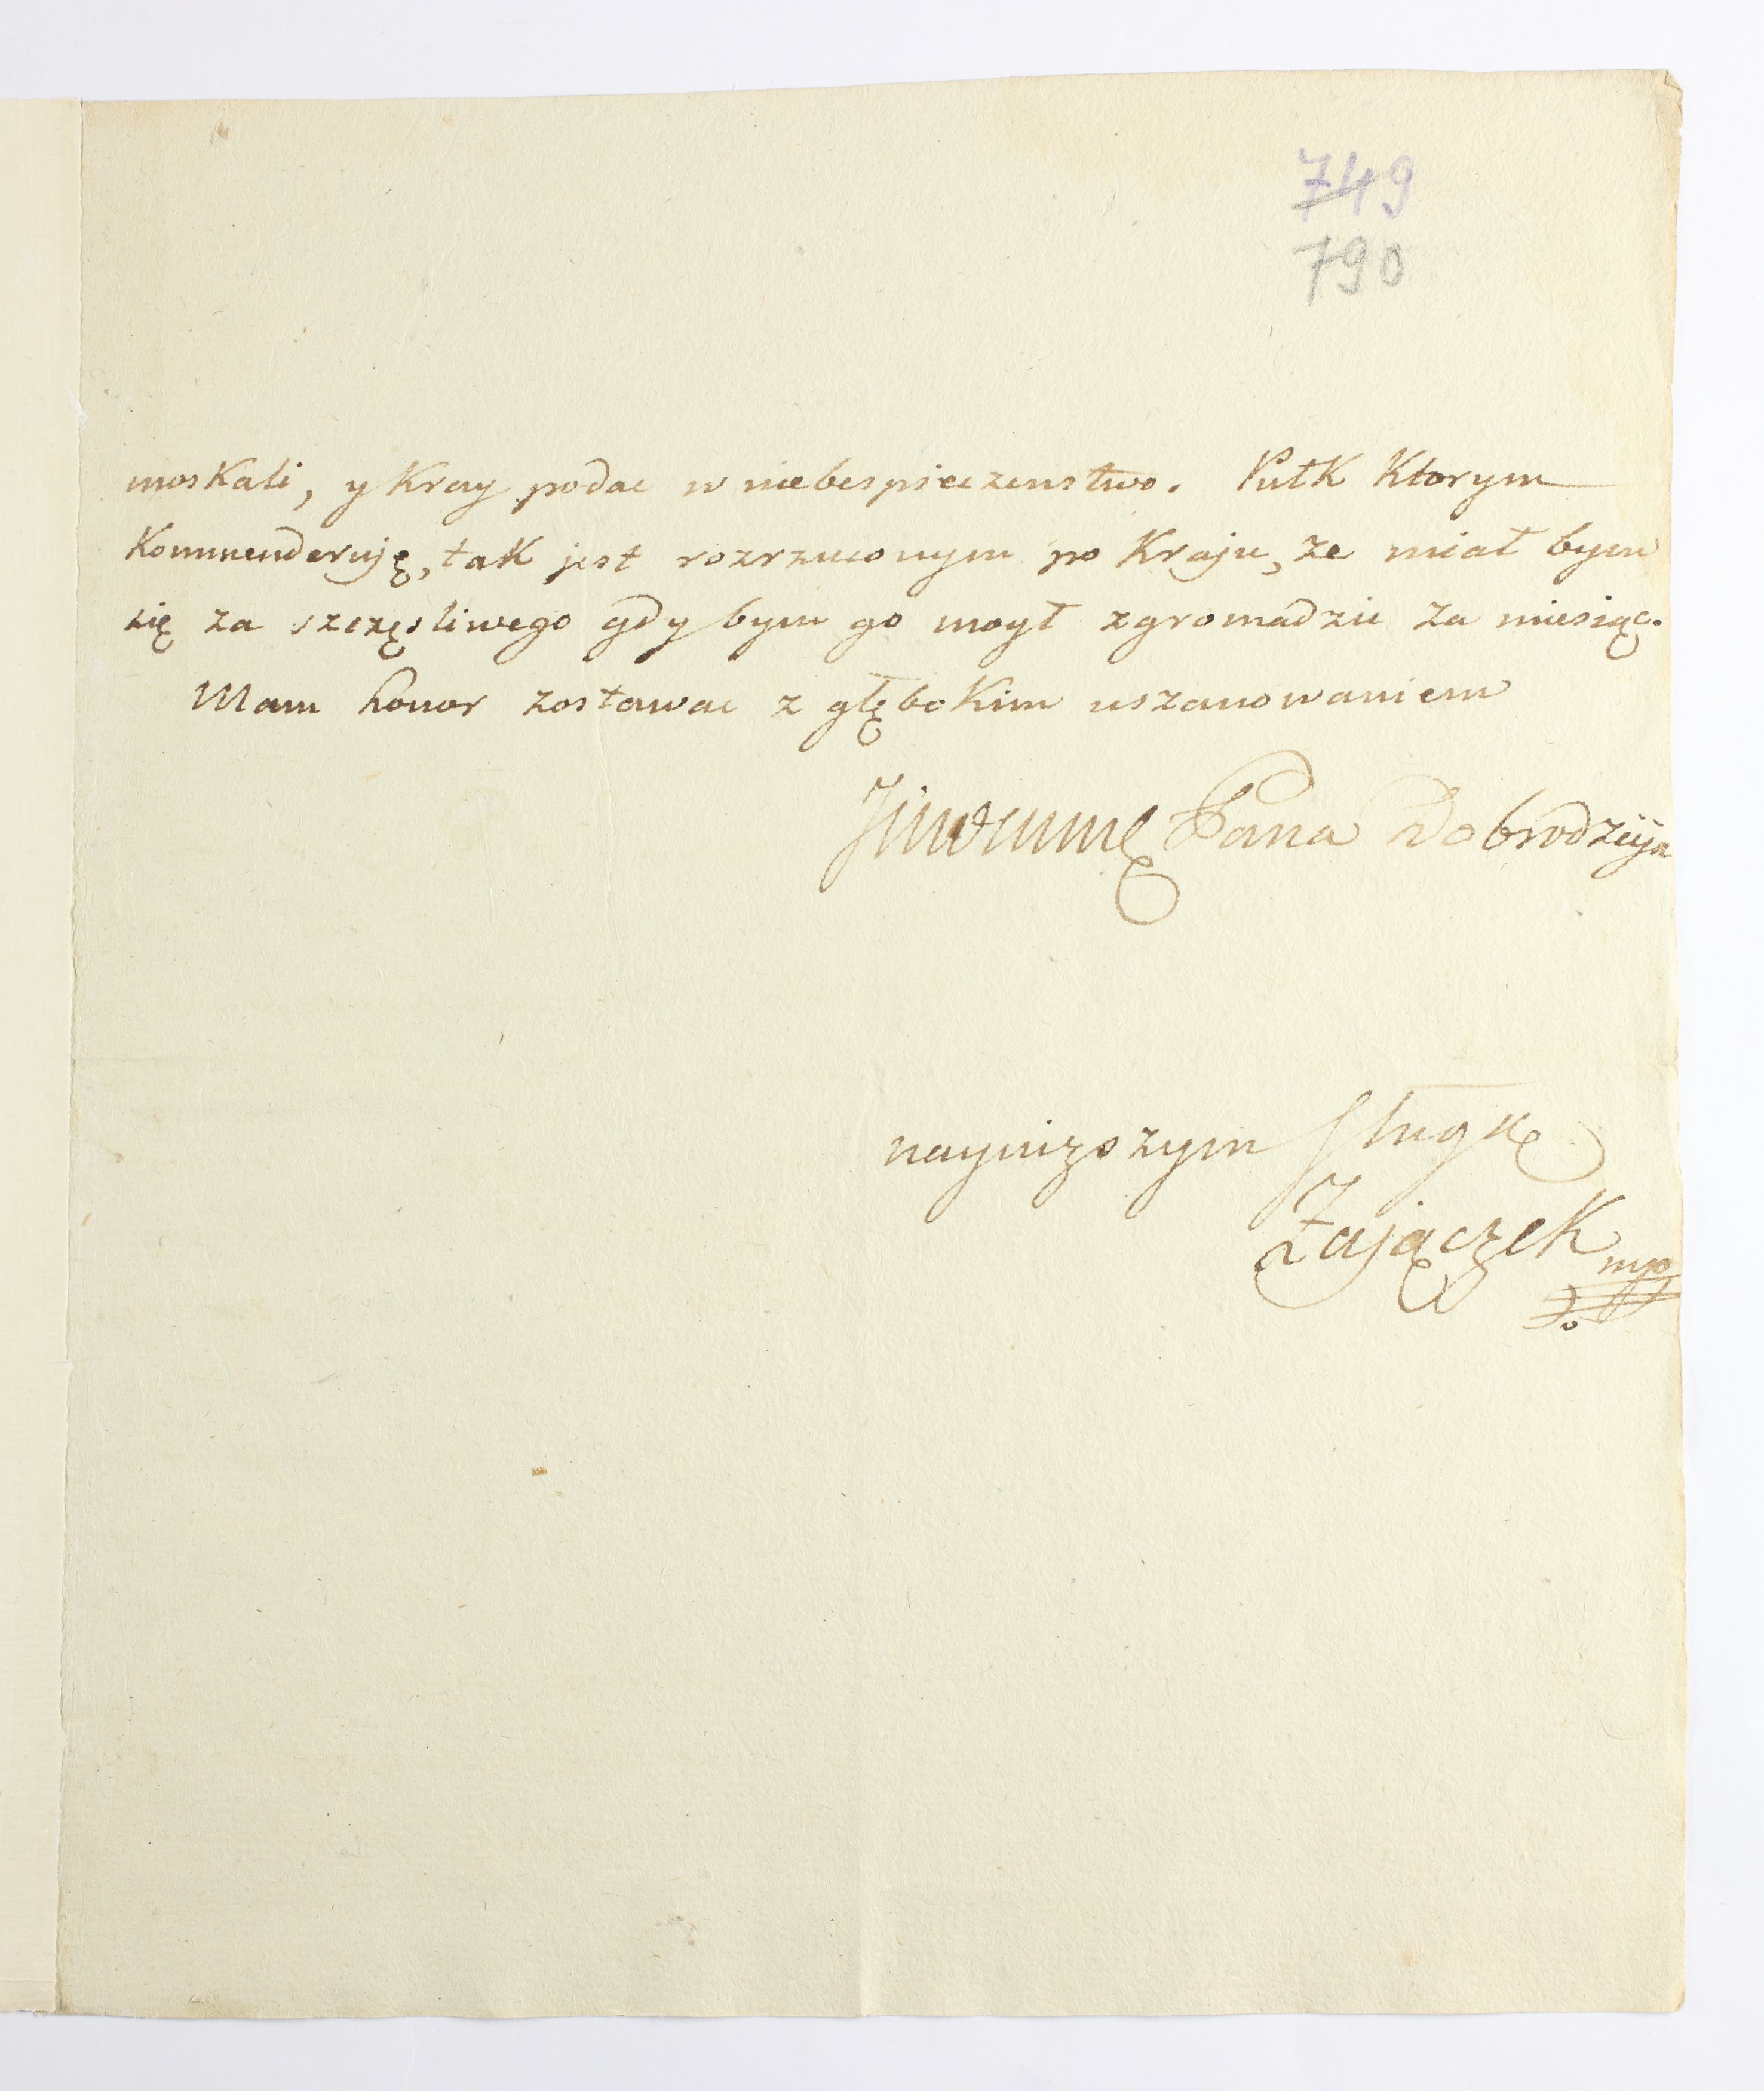 749
790
moskali, y Kray podac w niebespieczenstwo. Pułk Ktorym
Kommenderuję, tak jest rozrzuconym po Kraju, ze miał bym
się za szczęsliwego gdy bym go mogł zgromadzic za miesiąc.
Mam honor zostawac z głębokim uszanowaniem
Pana Dobrodzieja
naynizszym sługą
Zajączek mp